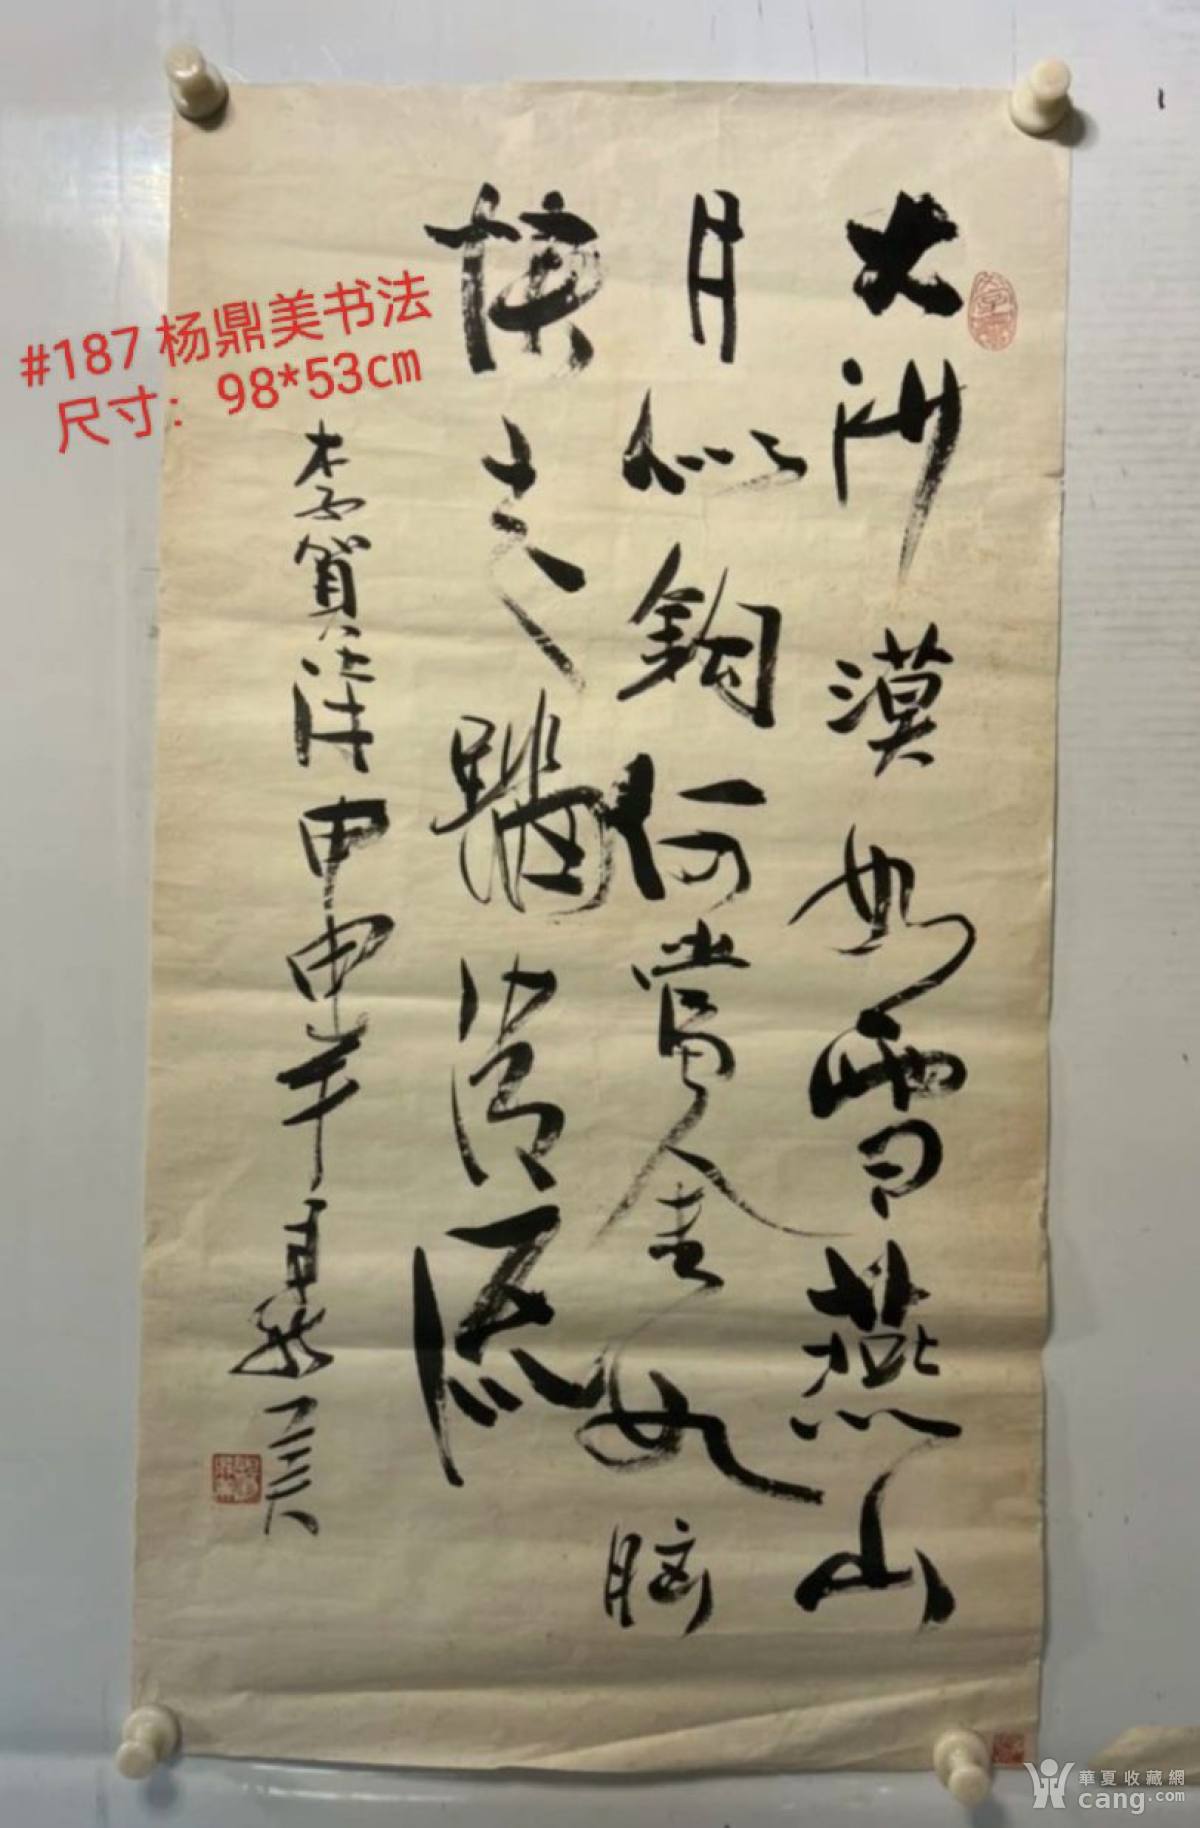 #187 杨鼎美书法
尺寸：98*53cm
大沙漠如雪燕山
月似鉤何當金如脑
快走踏清
李賀诗甲申年鼎美
華夏收藏網
cang.com